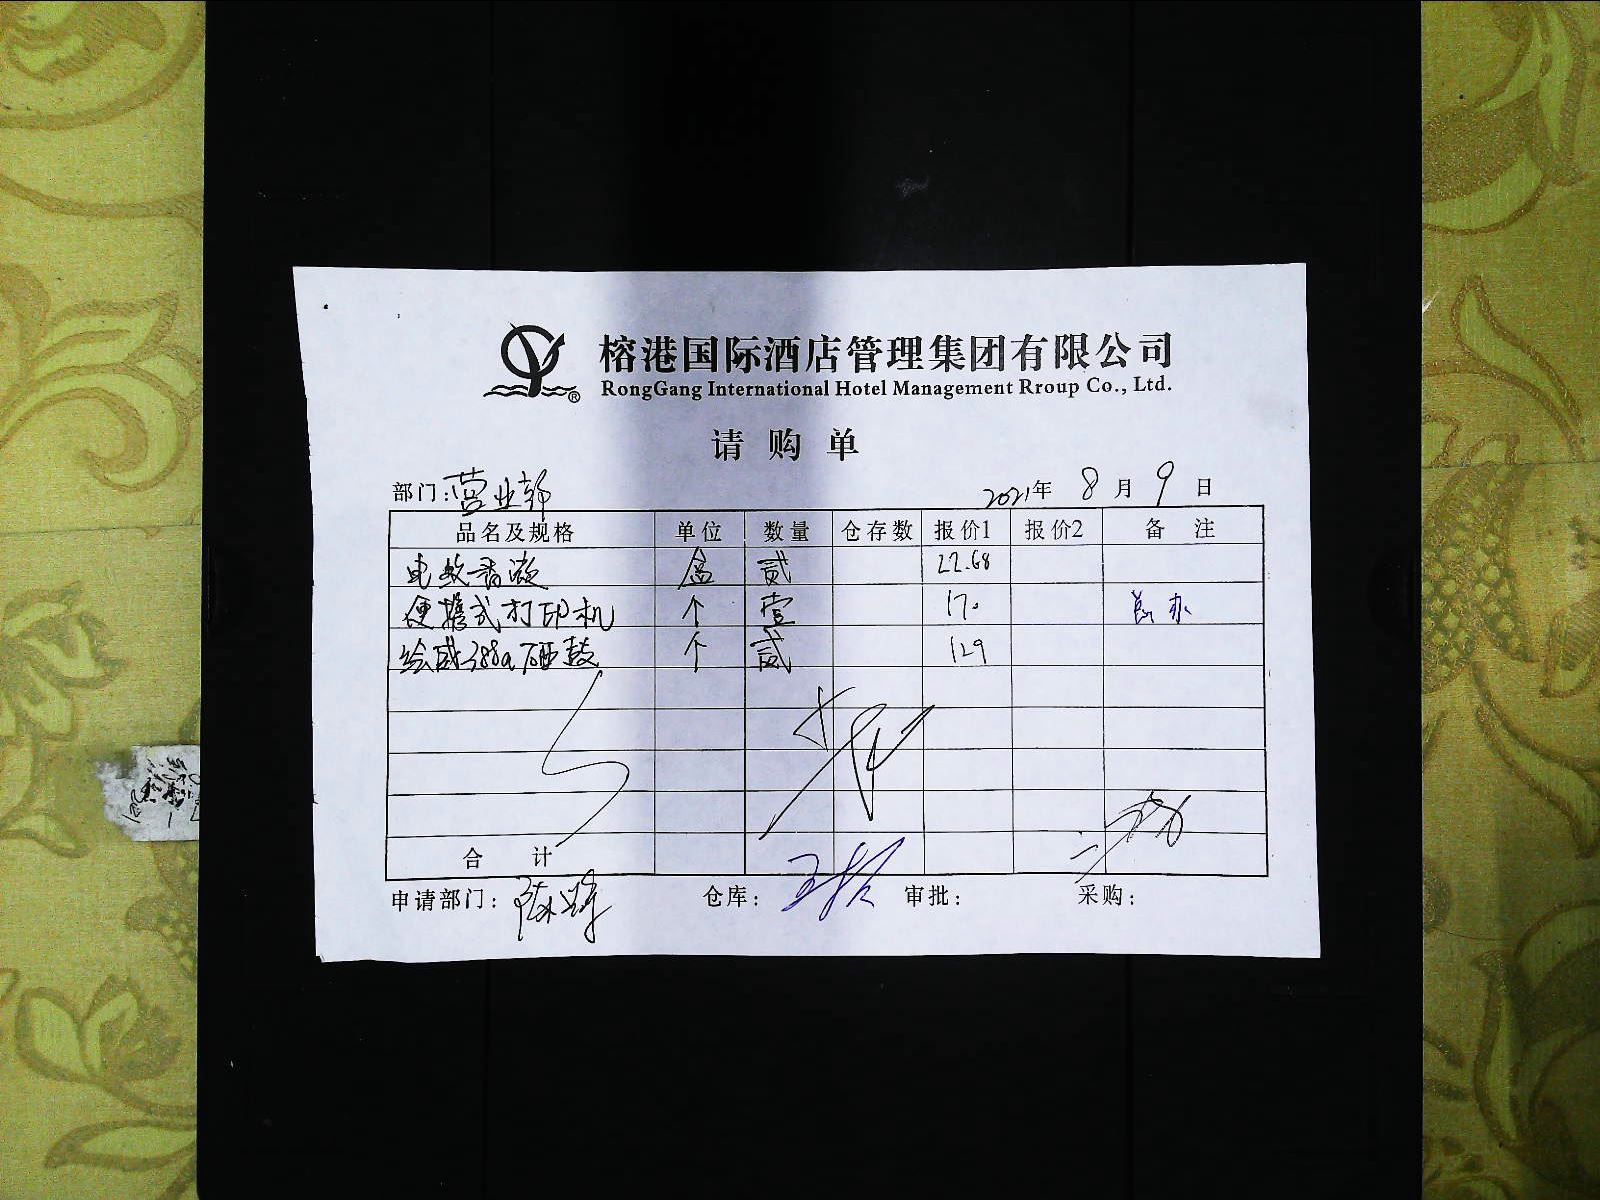 榕港国际酒店管理集团有限公司
RongGang International Hotel Management Rroup Co., Ltd.
请购单
部门:营业部 2021年8月9日
品名及规格 单位 数量 仓存数 报价1 报价2 备注
电蚊香液 盒 贰 22.68
便携式打印机 个 壹 170 总办
绘威388a硒鼓 个 贰 129
合计
申请部门: 仓库: 审批: 采购: